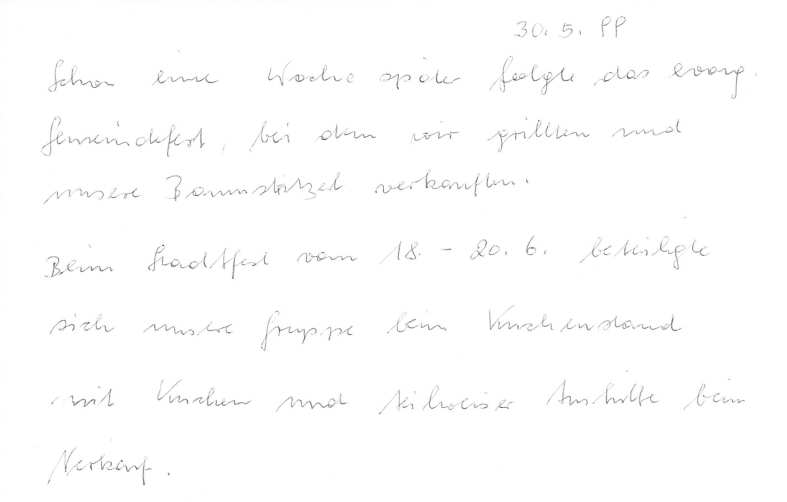 30. 5. 99
Schon eine Woche später folgte das evang.
Gemeindefest, bei dem wir grillten und
unsere Baumstritzel verkauften.
Beim Stadtfest vom 18. - 20. 6. beteiligte
sich unsere Gruppe beim Kuchenstand
mit Kuchen und teilweiser Aushilfe beim
Verkauf.